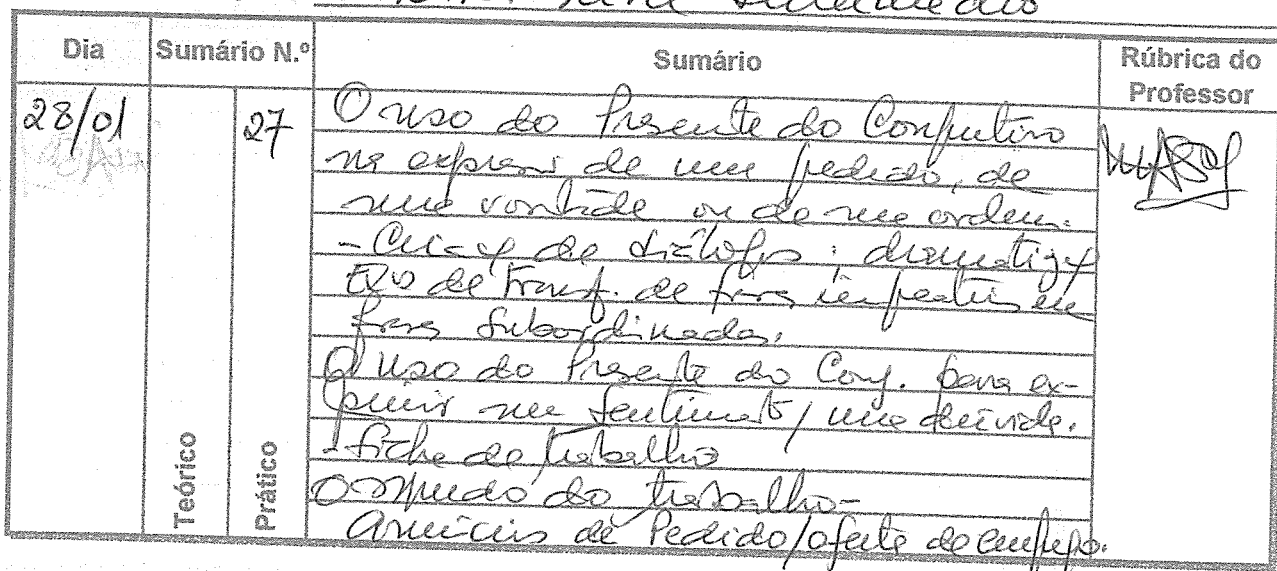 Dia Sumário N.º Sumário Rúbrica do Professor
28/01 27 O uso do Presente do Conjuntivo
na expressão de um pedido, de
uma vontade ou de uma ordem.
- Criaç de diálogos; dramatizaç
Exº de transf. de frases imperativas em
frases subordinadas.
O uso do Presente do Conj. para ex-
primir um sentimento/uma dúvida.
- ficha de trabalho
O mundo do trabalho -
anúncios de Pedido/oferta de emprego.
Teórico
Prático